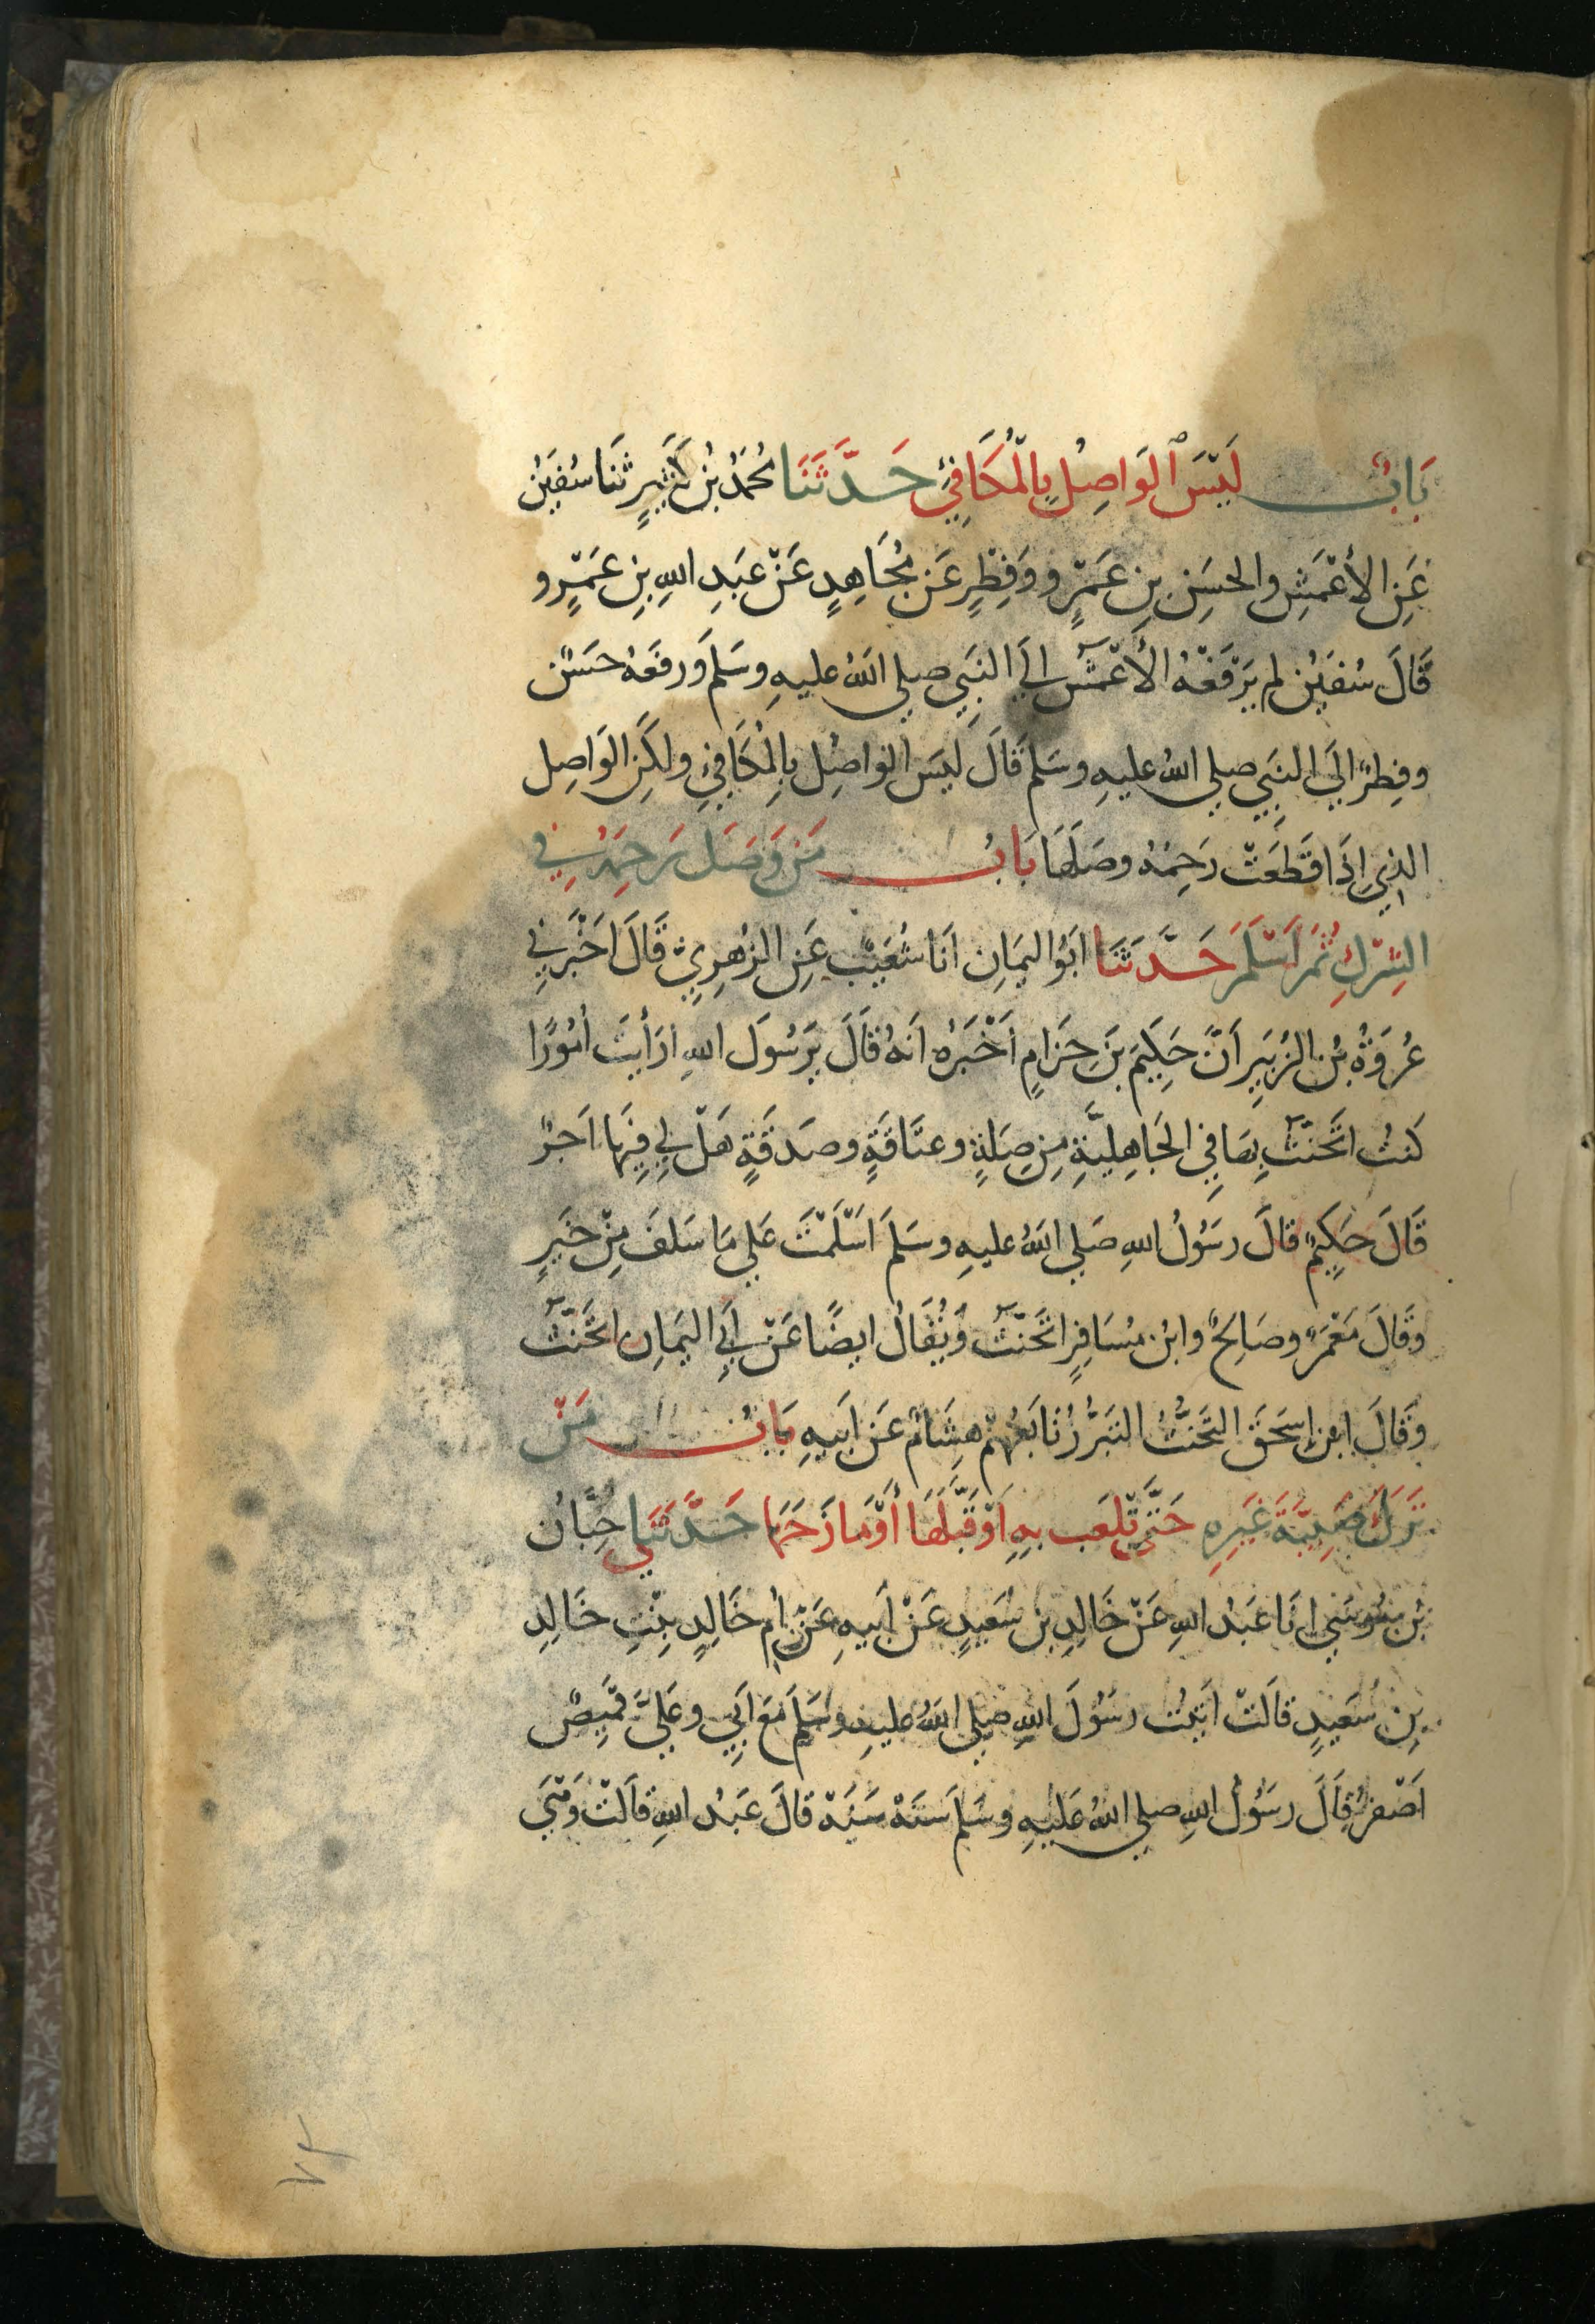 بَابٌ لَيْسَ ٱلوَاصِلُ بِالْمُكَافِئِ حَدَّثَنَا مُحَمَّدُ بْنُ كَثِيرٍ ثَنَا سُفْيٰنُ
عَنِ الأَعْمَشِ والحسَنِ بنِ عَمْرٍو وَفِطْرٍ عَن مُجَاهِدٍ عَنْ عبَدِ اللهِ بنِ عَمْرٍو
قَالَ سُفيٰن لم يَرْفَعْهُ الأَعْمَشُ إلَى النبَيِ صلى اللهُ عليهِ وسَلمَ ورفعَهُ حسَنٌ
وفِطرٌ إلَى النبَيِ صلى اللهُ عليهِ وسَلمَ قَالَ ليسَ الوَاصِلُ بِالمُكَافِئِ ولكَنِ الوَاصِل
الذِي إذَا قَطعَتْ رَحِمُهُ وصَلَهَا بَابُ مَنْ وَصَلَ رَحِمَهُ فِي
الشِّرْكِ ثُمَّ أَسْلَمَ حَدَّثَنَا ابَوُ اليمَانِ انَا شُعَيْبٌ عَنِ الزُهرِيِّ قَالَ اخَبَرَنِي
عُروَةُ بنُ الزُبَيرِ أَنَّ حَكِيمَ بنَ حِزَامٍ أَخْبَرَهُ انَهُ قَالَ يَرَسُولَ اللهِ ارَأيتَ امُورًا
كنَتُ اتَحَنَّثُ بهَا فِي الجَاهِلِيَّةِ مِن صِلَةٍ وعتَاقَةٍ وصَدَقَةٍ هَلْ لِي فِيهَا اَجرٌ
قَالَ حَكِيمٌ قالَ رسَوُلُ اللهِ صَلى اللهُ عليهِ وسَلمَ اَسْلَمْتَ عَلى مَا سَلفَ مِنْ خَيرٍ
وقَالَ مَعْمَرٌ وصَالِحٌ وابنُ مسُافِرٍ اتَحَنَّثُ وَيُقَالُ ايضًا عَنْ ابَي اليمَانِ اتحَنَّتُ
وقَالَ ابنُ إسحَقَ التَحَنُّثُ التبَرُّرُ تَابَعَهُمْ هِشَامٌ عَن ابَيهِ بَابُ مَنْ
تَرَكَ صَبِيَّةَ غَيرِهِ حَتَّى تَلْعَب بهِ اَوْقَبَّلَهَا أَوْمَازَحَهَا حَدَّثَنَا حِبَّانُ
بنُ مُوسَى انَا عَبْدُ اللهِ عَنْ خَالدِ بن سَعيدٍ عَنْ ابَيهِ عَنْ امُ خَالدٍ بنِتِ خَالدِ
بنِ سَعَيدٍ قالَتْ اتَيتُ رسَوُلَ اللهِ صلى اللهُ عليهِ وسَلمَ مَعَ ابَي وعَلَيَّ قمَيِصٌ
اَصْفرُ قالَ رسَوُلُ اللهِ صلى اللهُ عَليهِ وسَلمَ سَنَهْ سَنَهْ قالَ عَبدُ اللهِ قالَتْ وَهْيَ
٧٣